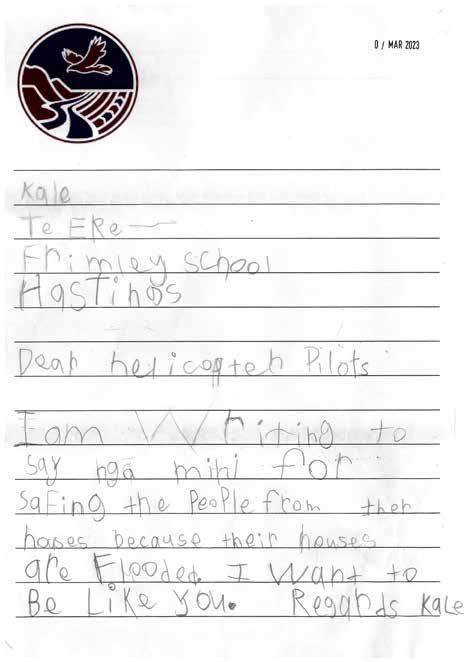 0 / MAR 2023
Kale
Te ERe
Frimley school
HasTings
Dear helicopter Pilots
I am Writing to
say ngā mihi for
safing the people from ther
hoses because their houses
are Flooded. I want to
Be Like you. Regards Kale